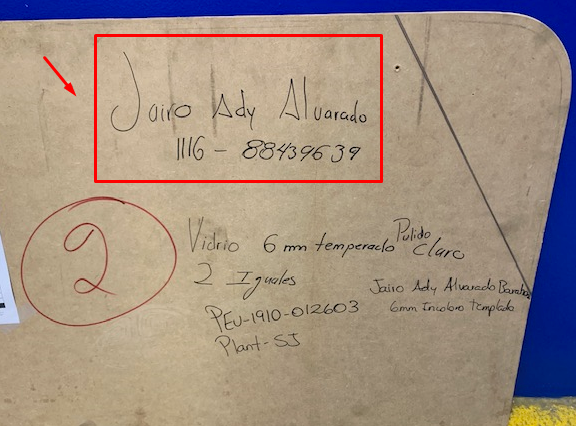 Jairo Ady Alvarado
1116 - 88439639
2
Vidrio 6 mm temperado Pulido Claro
2 Iguales
PEU-1910-012603
Plant-SJ
Jairo Ady Alvarado
6mm Incoloro Templado